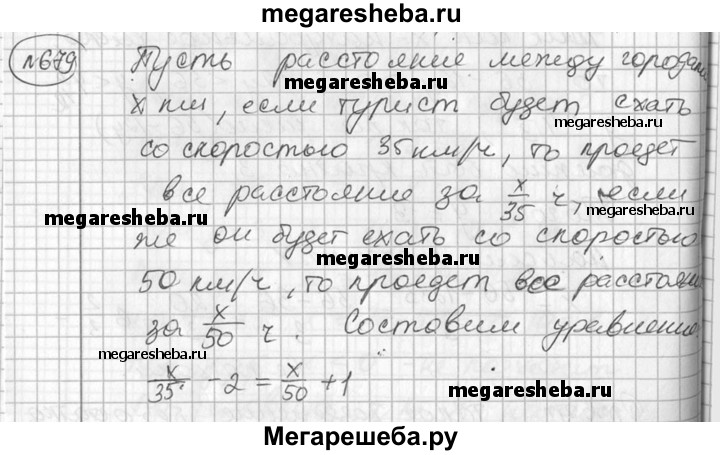 megaresheba.ru
№679 Пусть расстояние между городами
megaresheba.ru
x км, если турист будет ехать
megaresheba.ru
со скоростью 35 км/ч, то проедет
все расстояние за x/35 ч, если
megaresheba.ru
megaresheba.ru
же он будет ехать со скоростью
megaresheba.ru
50 км/ч, то проедет все расстояние
за x/50 ч. Составим уравнение
megaresheba.ru
x/35 - 2 = x/50 + 1
megaresheba.ru
Мегарешеба.ру